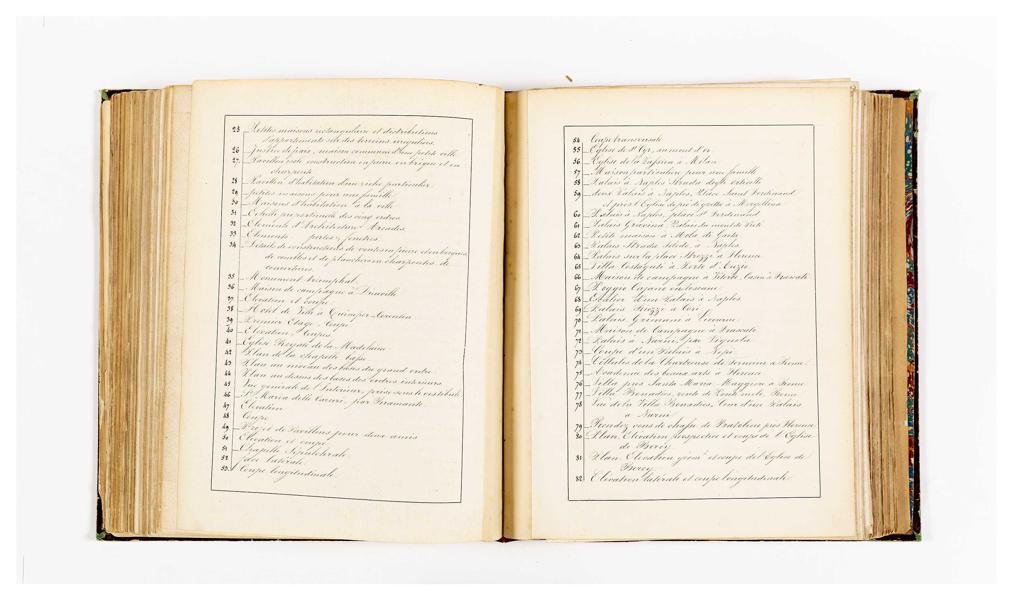 25 Petites maisons rectangulaire et distributions
d'appartements sur des terrains irreguliers.
26 Justice de paix, maison commune d'une petite ville
27 Pavillon construction en pierre en brique et en
charpente
28 Pavillon d'habitation d'un riche particulier
29 petites maisons pour une famille
30 Maisons d'habitation à la ville
31 des cinq ordres
32 Eléments d'Architecture Arcades
33 Eléments portes & fenêtres
34 Détails de constructions de
de et de planchers en charpentes, de
couvertures
35 Monument triomphal
36 Maison de campagne à
37 Elévation et coupe
38 Hotel de Ville à Quimper-Corentin
39 Premier Etage, Coupe
40 Elévation, Coupes
41 Eglise Royale de la Madelaine
42 Plan de la chapelle basse
43 Plan au niveau des bases du grand ordre
44 Plan au dessus des bases des ordres intérieurs
45 Vue générale de l'Intérieur, prise sous le vestibule
46 Sta Maria delle Carceri, par Bramante
47 Elévation
48 Coupe
49 Projet de Pavillons pour deux amis
50 Elévation et coupe
51 Chapelle Sépulchrale
52 face latérale
53 Coupe longitudinale
54 Coupe transversale
55 Eglise de St Cyr, au mont d'or
56 Eglise de la Passion à Milan
57 Maison particulière pour une famille
58 Palais à Naples Strada degli
59 deux Palais à Naples, Place Saint Ferdinand
et près l'Eglise de pié di grotta à Mergellina
60 Palais à Naples, place St Ferdinand
61 Palais Gravina, Palais du
62 Petite maison à Mola de Gaëta
63 Palais Strada Toledo, à Naples
64 Palais sur la place Strozzi à Florence
65 Villa Costaguti à Porto d'Anzio
66 Maison de campagne à Viterbe, Casin à Frascati
67 Poggio Cajano en toscane
68 Escalier d'un Palais à Naples
69 Palais à Cori
70 Palais Grimani à Livourne
71 Maison de Campagne à Frascati
72 Palais à Narni par Vignola
73 Coupe d'un Palais à Nepi
74 Cellules de la Chartreuse de Termini à Rome
75 Academia des beaux arts à Florence
76 Villa près Santa Maria Maggiore à Rome
77 Villa route de Ponte mole, Rome
78 Vue de la Villa Cour d'un Palais
à Narni
79 Rendez vous de chasse de Pratolin près Florence
80 Plan, Elévation perspective et coupe de l'Eglise
de Bercy
81 Plan, Elévation géomle et coupe de l'Eglise de
Bercy
82 Elévation latérale et coupe longitudinale